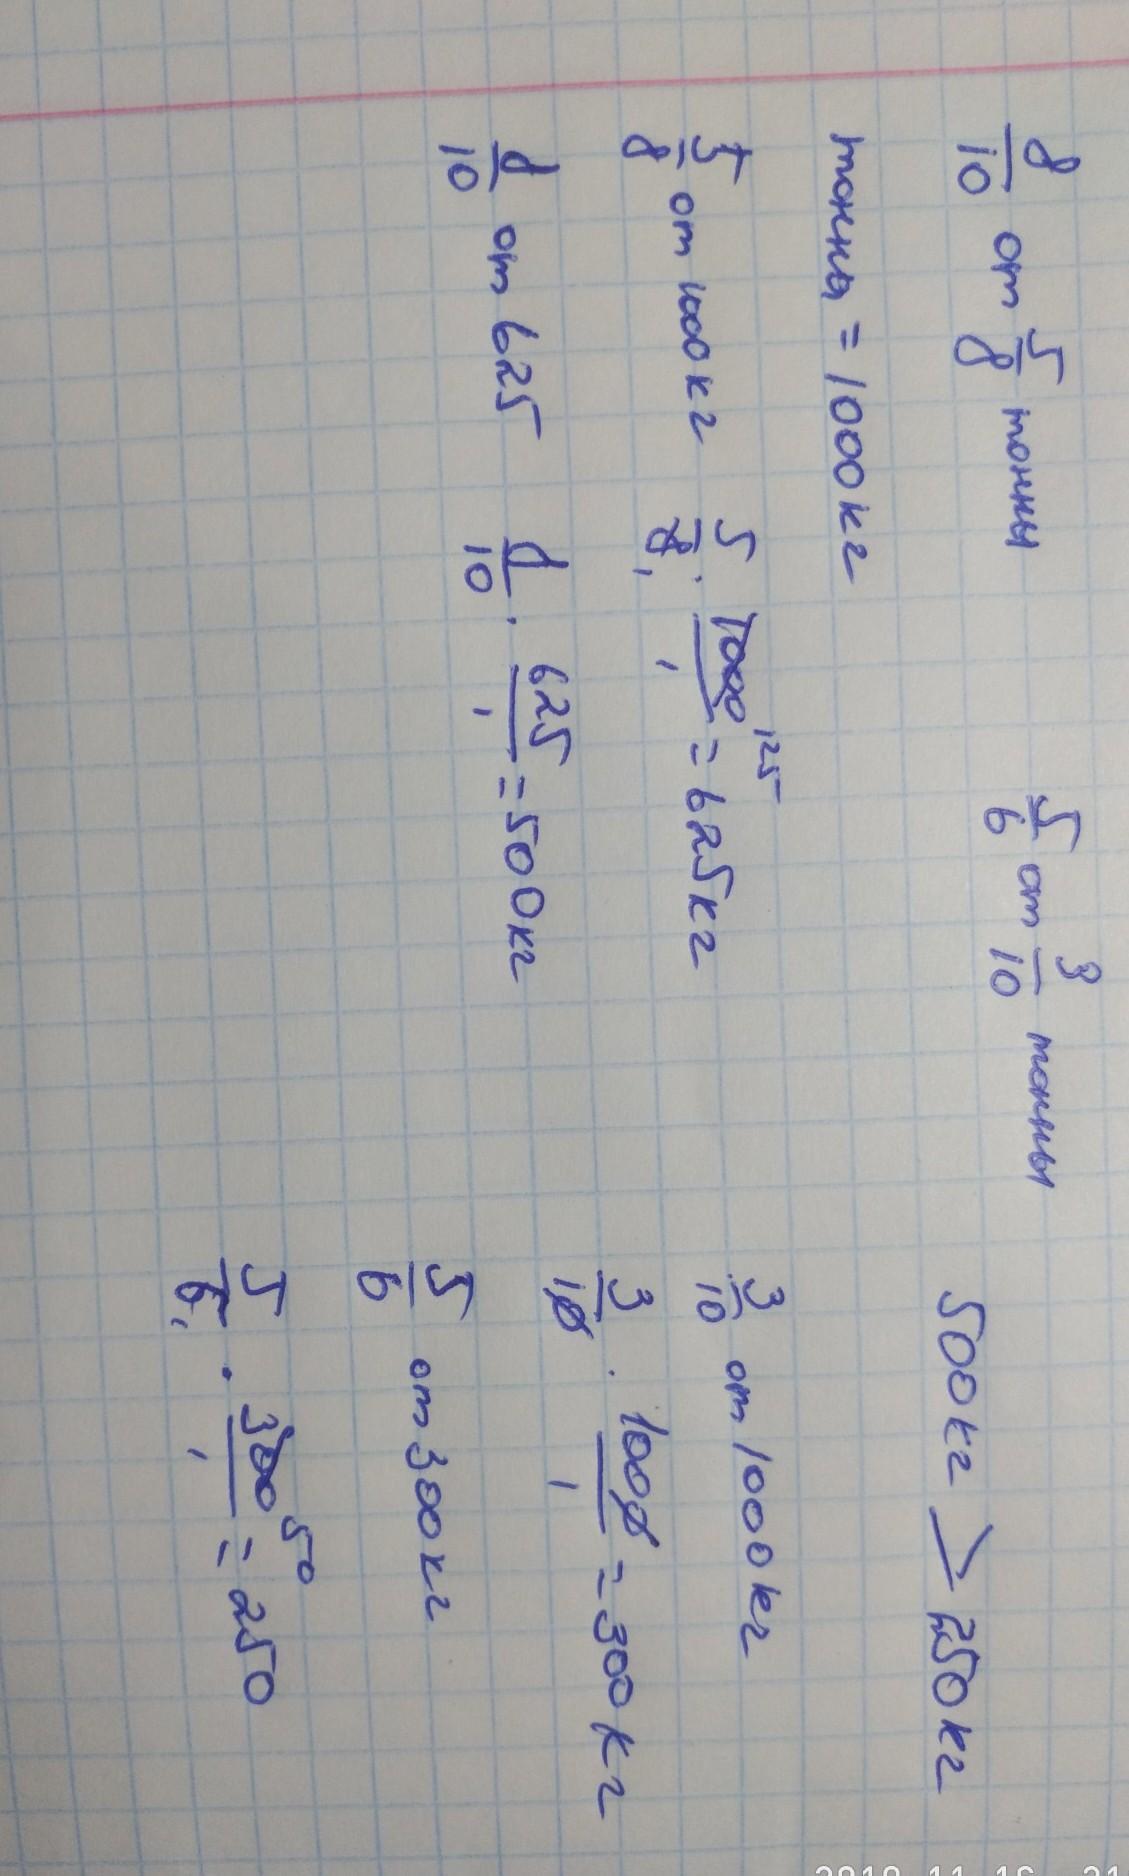 8/10 от 5/8 тонны
тонны = 1000кг
5/8 от 1000кг 5/8 1 · 1000/1 125 = 625кг
8/10 от 625 8/10 · 625/1 = 500кг
5/6 от 3/10 тонны
500кг > 250кг
3/10 от 1000кг
3/10 · 1000/1 = 300кг
5/6 от 300кг
5/6 1 · 300/1 50 = 250